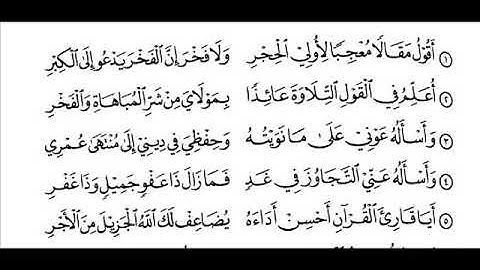 ١ أَقُولُ مَقَالًا مُعْجِبًا لِأُولِي الْحِجْرِ وَلَا فَخْرَ إِنَّ الْفَخْرَ يَدْعُو إِلَى الْكِبْرِ
٢ أُعَلِّمُ فِي الْقَوْلِ التِّلَاوَةَ عَائِذًا بِمَوْلَايَ مِنْ شَرِّ الْمُبَاهَاةِ وَالْفَخْرِ
٣ وَأَسْأَلُهُ عَوْنِي عَلَى مَا نَوَيْتُهُ وَحِفْظِيَ فِي دِينِي إِلَى مُنْتَهَى عُمْرِي
٤ وَأَسْأَلُهُ عَنِّي التَّجَاوُزَ فِي غَدٍ فَمَا زَالَ ذَا عَفْوٍ جَمِيلٍ وَذَا غَفْرِ
٥ أَيَا قَارِئَ الْقُرْآنِ أَحْسِنْ أَدَاءَهُ يُضَاعِفْ لَكَ اللَّهُ الْجَزِيلَ مِنَ الْأَجْرِ